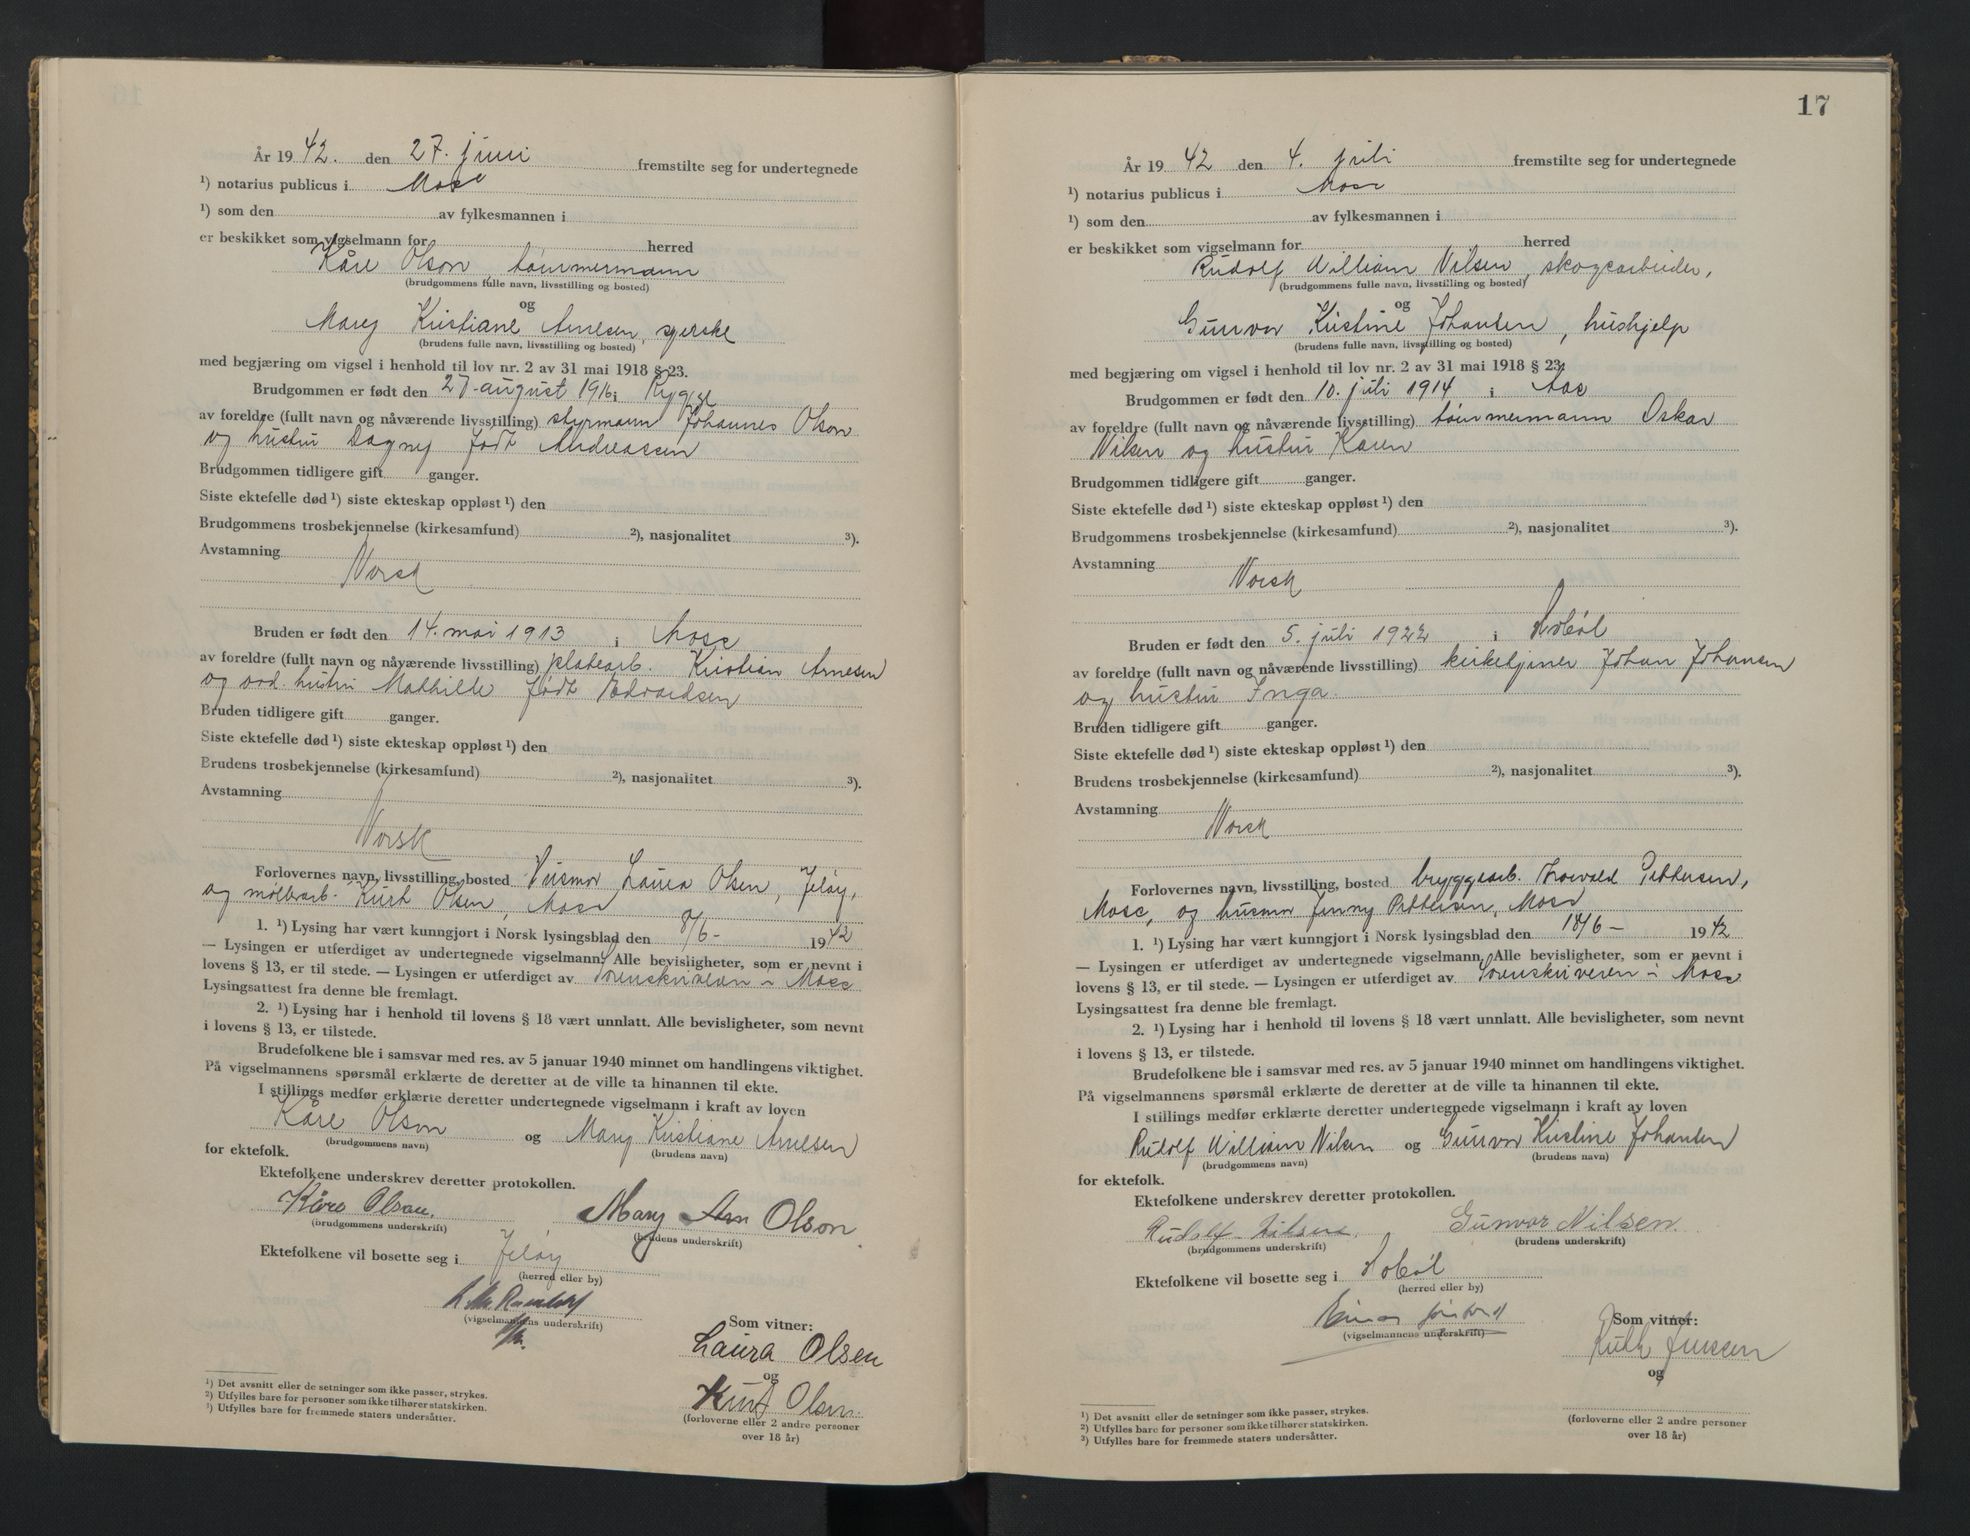 År 1942. den 27. juni fremstilte seg for undertegnede
¹) notarius publicus i Moss
¹) som den av fylkesmannen i
er beskikket som vigselmann for herred
Kåre Olson, tömmermann
(brudgommens fulle navn, livsstilling og bosted)
og
Mary Kristiane Arnesen, syerske
(brudens fulle navn, livsstilling og bosted)
med begjæring om vigsel i henhold til lov nr. 2 av 31 mai 1918 § 23.
Brudgommen er født den 27. august 1916 i Rygge
av foreldre (fullt navn og nåværende livsstilling) styrmann Johannes Olson
og hustru Dagny født Andreassen
Brudgommen tidligere gift ganger.
Siste ektefelle død ¹) siste ekteskap oppløst ¹) den
Brudgommens trosbekjennelse (kirkesamfund) ²), nasjonalitet ³).
Avstamning
Norsk
Bruden er født den 14. mai 1913 i Moss
av foreldre (fullt navn og nåværende livsstilling) platearb. Kristian Arnesen
og hustru Mathilde født Edvardsen
Bruden tidligere gift ganger.
Siste ektefelle død ¹) siste ekteskap oppløst ¹) den
Brudens trosbekjennelse (kirkesamfund) ²), nasjonalitet ³).
Avstamning
Norsk
Forlovernes navn, livsstilling, bosted Husmor Laura Olsen, Jeløy,
og möllearb. Kurt Olsen, Moss
1. ¹) Lysing har vært kunngjort i Norsk lysingsblad den 8/6 - 1942
— Lysingen er utferdiget av undertegnede vigselmann. Alle bevisligheter, som er nevnt i
lovens § 13, er til stede. — Lysingen er utferdiget av Sorenskriveren i Moss
Lysingsattest fra denne ble fremlagt.
2. ¹) Lysing har i henhold til lovens § 18 vært unnlatt. Alle bevisligheter, som nevnt
i lovens § 13, er tilstede.
Brudefolkene ble i samsvar med res. av 5 januar 1940 minnet om handlingens viktighet.
På vigselmannens spørsmål erklærte de deretter at de ville ta hinannen til ekte.
I stillings medfør erklærte deretter undertegnede vigselmann i kraft av loven
Kåre Olson og Mary Kristiane Arnesen
(brudgommens navn) (brudens navn)
for ektefolk.
Ektefolkene underskrev deretter protokollen.
Kåre Olson. Mary Arn Olson
(brudgommens underskrift) (brudens underskrift)
Ektefolkene vil bosette seg i Jeløy
(herred eller by)
(vigselmannens underskrift)
Som vitner:
Laura Olsen
og
Kurt Olsen
(forloverne eller 2 andre personer
over 18 år)
¹) Det avsnitt eller de setninger som ikke passer, strykes.
²) Utfylles bare for personer som ikke tilhører statskirken.
³) Utfylles bare for fremmede staters undersåtter.
17
År 1942 den 4. juli fremstilte seg for undertegnede
¹) notarius publicus i Moss
¹) som den av fylkesmannen i
er beskikket som vigselmann for herred
Rudolf William Nilsen, skogsarbeider,
(brudgommens fulle navn, livsstilling og bosted)
og
Gunvor Kristine Johansen, hushjelp
(brudens fulle navn, livsstilling og bosted)
med begjæring om vigsel i henhold til lov nr. 2 av 31 mai 1918 § 23.
Brudgommen er født den 10. juli 1914 i Aas
av foreldre (fullt navn og nåværende livsstilling) tömmermann Oskar
Nilsen og hustru Karen
Brudgommen tidligere gift ganger.
Siste ektefelle død ¹) siste ekteskap oppløst ¹) den
Brudgommens trosbekjennelse (kirkesamfund) ²), nasjonalitet ³).
Avstamning
Norsk
Bruden er født den 5. juli 1922 i Hobøl
av foreldre (fullt navn og nåværende livsstilling) kirketjener Johan Johansen
og hustru Inga.
Bruden tidligere gift ganger.
Siste ektefelle død ¹) siste ekteskap oppløst ¹) den
Brudens trosbekjennelse (kirkesamfund) ²), nasjonalitet ³).
Avstamning
Norsk
Forlovernes navn, livsstilling, bosted bryggearb. Thorvald Pettersen,
Moss, og husmor Jenny Pettersen, Moss
1. ¹) Lysing har vært kunngjort i Norsk lysingsblad den 18/6 - 1942
— Lysingen er utferdiget av undertegnede vigselmann. Alle bevisligheter, som er nevnt i
lovens § 13, er til stede. — Lysingen er utferdiget av Sorenskriveren i Moss
Lysingsattest fra denne ble fremlagt.
2. ¹) Lysing har i henhold til lovens § 18 vært unnlatt. Alle bevisligheter, som nevnt
i lovens § 13, er tilstede.
Brudefolkene ble i samsvar med res. av 5 januar 1940 minnet om handlingens viktighet.
På vigselmannens spørsmål erklærte de deretter at de ville ta hinannen til ekte.
I stillings medfør erklærte deretter undertegnede vigselmann i kraft av loven
Rudolf William Nilsen og Gunvor Kristine Johansen
(brudgommens navn) (brudens navn)
for ektefolk.
Ektefolkene underskrev deretter protokollen.
Rudolf Nilsen. Gunvor Nilsen.
(brudgommens underskrift) (brudens underskrift)
Ektefolkene vil bosette seg i Hobøl
(herred eller by)
(vigselmannens underskrift)
Som vitner:
Ruth Jenssen
og
(forloverne eller 2 andre personer
over 18 år)
¹) Det avsnitt eller de setninger som ikke passer, strykes.
²) Utfylles bare for personer som ikke tilhører statskirken.
³) Utfylles bare for fremmede staters undersåtter.